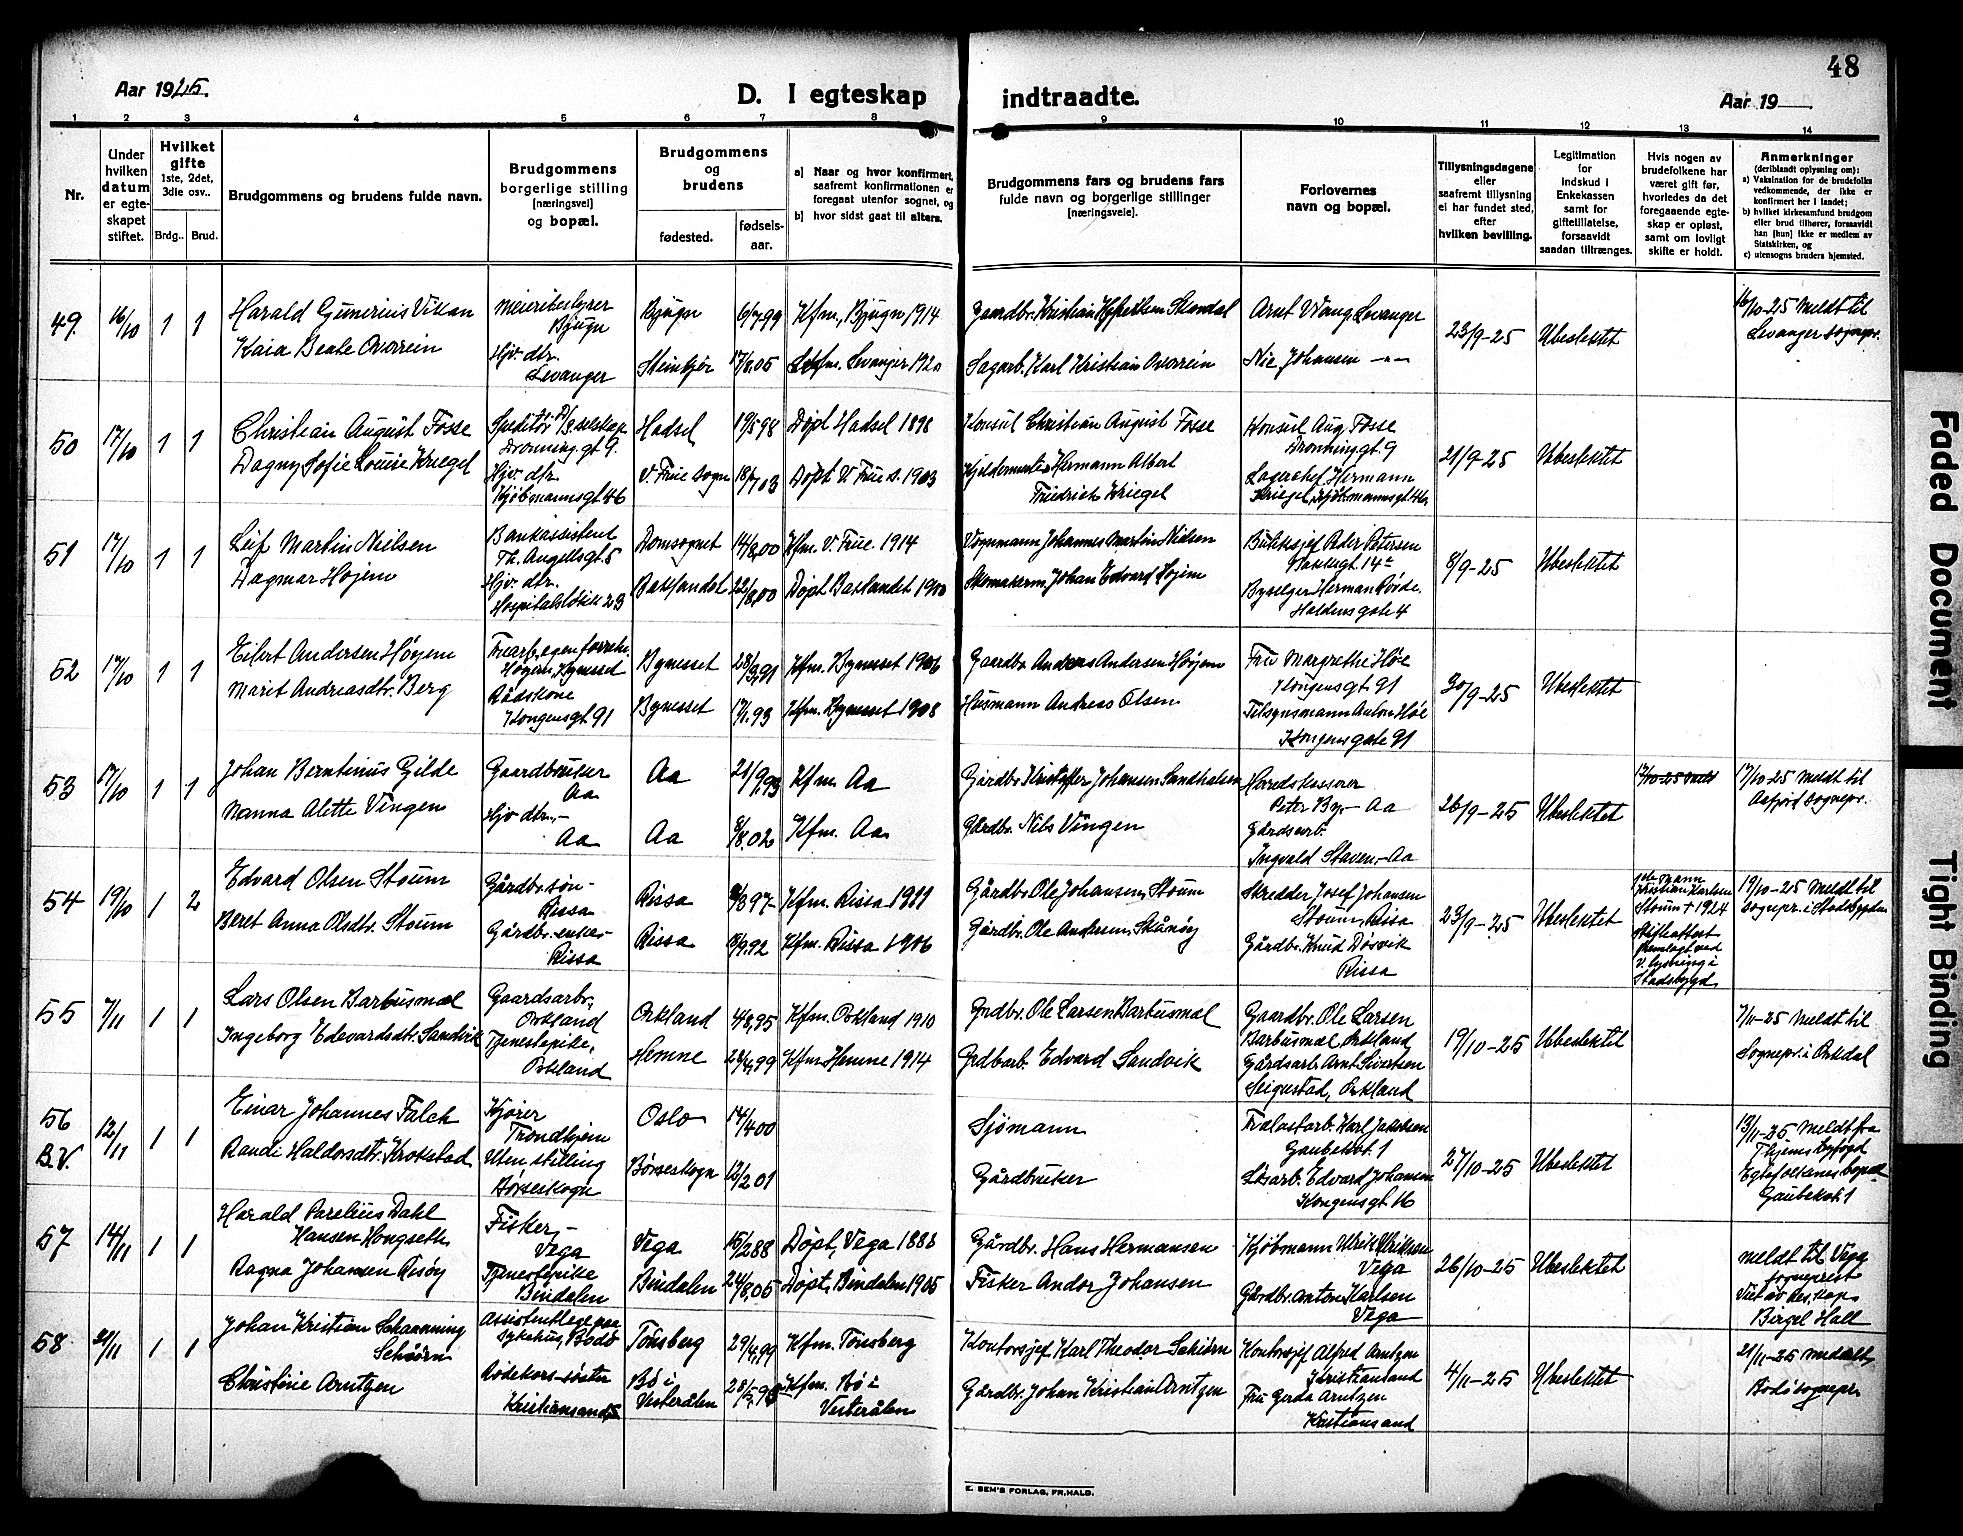 48
Aar 1925.
D. I egteskap
indtraadte.
Aar 19
1 2 3 4 5 6 7 8 9 10 11 12 13 14
Nr.
Under hvilken datum er egte-skapet stiftet.
Hvilket gifte
1ste, 2det, 3die osv..
Brdg.. Brud.
Brudgommens og brudens fulde navn.
Brudgommens
borgerlige stilling
[næringsvei]
og bopæl.
Brudgommens
og
brudens
fødested.
fødsels-aar.
a) Naar og hvor konfirmert,
saafremt konfirmationen er
foregaat utenfor sognet, og
b) hvor sidst gaat til alters.
Brudgommens fars og brudens fars
fulde navn og borgerlige stillinger
[næringsveie].
Forlovernes
navn og bopæl.
Tillysningsdagene
eller
saafremt tillysning
ei har fundet sted,
efter
hvilken bevilling.
Legitimation
for
Indskud i
Enkekassen
samt for
giftetillatelse,
forsaavidt
saadan tiltrænges.
Hvis nogen av
brudefolkene har
været gift før,
hvorledes da det
foregaaende egte-
skap er opløst,
samt om lovligt
skifte er holdt.
Anmerkninger
(deriblandt oplysning om):
a) Vaksination for de brudefolks
vedkommende, der ikke er
konfirmert her i landet;
b) hvilket kirkesamfund brudgom
eller brud tilhører, forsaavidt
han [hun] ikke er medlem av
Statskirken, og
c) utensogns bruders hjemsted.
49. 16/10 1 1
Harald Gunerius Vikan
Kaia Beate Overrein
Meieribestyrer
Bjugn
Hjv. dtr.
Levanger
Bjugn 6/7 99 Kfm., Bjugn 1914
Steinkjer 17/8.05 Kfm. Levanger 1920
Gaardbr. Kristian
Sagarb. Karl Kristian Overrein
Arnt Wang Levanger
Nic Johansen —"—
23/9-25 Ubeslektet
16/10-25 Meldt til
Levanger sognepr.
50 17/10 1 1
Christian August Fosse
Dagny Sofie Louise Kriegel
Dronning. gt 9.
Hjv. dtr.
Kjøbmannsgt 46
Hadsel 19/5 98 Døpt Hadsel 1898
V. Frue sogn 18/7 03 Døpt V. Frue s. 1903
Konsul Christian August Fosse
Kjeldermester Hermann Albert
Friedrich Kriegel
Konsul Aug. Fosse
Dronning. gt. 9
Lagerchef Hermann
Kriegel, Kjøbmannsgt 46
21/9-25 Ubeslektet
51 17/10 1 1
Leif Martin Nielsen
Dagmar Højem
Bankassistent
Th. Angellsgt. 5
Hjv. dtr.
Hospitalsløkk. 23
Domsognet 14/8.00 Kfm. V. Frue 1914
Baklandet 22/8.00 Døpt Baklandet 1900
Vognmann Johannes Martin Nielsen
Skomakerm. Johan Edvard Højem
Butikksjef Peder Petersen
Byselger Herman Rørde.
Haldens gate 4
8/9-25 Ubeslektet
52 17/10 1 1
Eilert Andersen Høyem
Marit Andreasdtr. Berg
Trearb. egen forretn.
Høyem, Bynesset
Rådskone
Kongensgt. 91
Bynesset 28/3.91 Kfm. Bynesset 1906
Bynesset 17/1.93 Kfm. Bynesset 1908
Gaardbr. Andreas Andersen Høyem
Husmann Andreas Olsen
Fru Margrethe Høe
Kongensgt. 91
Tilsynsmann Anton Høe
Kongens gate 91
30/9-25 Ubeslektet
53 17/10 1 1
Johan Berntinus Gilde
Nanna Alette Vingen
Gaardbruker
Aa
Hjv dtr.,-
Aa
Aa 21/9.93 Kfm. Aa
Aa 8/8.02 Kfm. Aa
Gårdbr. Kristoffer Johansen Sandhalsen
Gårdbr. Nils Vingen
Herredskasserer
Peter By,- Aa
Gårdsarb.
Ingvald Staven,- Aa
26/9-25 Ubeslektet
17/10-25 Meldt
17/10-25 Meldt til
Aafjord sognepr.
54 19/10 1 2
Edvard Olsen Stoum
Beret Anna Olsdtr. Stoum
Gårdbr. søn-
Rissa
Gårdbr.-enke-
Rissa
Rissa 9/8 97- Kfm. Rissa 1911
Rissa Kfm. Rissa 1906
Gårdbr. Ole Johansen, Stoum
Gårdbr. Ole Andersen, Skånøy
Skredder Josef Johansen
Stoum, Rissa
Gårdbr. Knud Dørvik
Rissa
23/9-25 Ubeslektet
Kristian Karlsen
Stoum † 1924
Skifteattest
fremlagt ved
v. lysning i
Stadsbygd
19/10-25 Meldt til
sognepr. i Stadsbygden
55 7/11 1 1
Lars Olsen Barbusmæl
Ingeborg Edevardsdtr. Sandvik
Gaardsarbr,
Orkland
Tjenestepike,
Orkland
Orkland 4/8.95 Kfm. Orkland 1910
Hemne 23/4.99 Kfm. Hemne 1914
Grdbr. Ole Larsen Barbusmæl
Grdbarb. Edvard Sandvik
Gaardbr. Ole Larsen
Barbusmæl, Orkland
Gårdsarb. Arnt Sivertsen
Seigustad, Orkland
19/10-25 Ubeslektet
7/11-25 Meldt til
Sognepr. i Orkdal
56
B.V. 12/11 1 1
Einar Johannes Falch
Randi Haldorsdtr. Krokstad
Kjører
Trondhjem
Uten stilling
Børseskogn
Oslo 14/4 00
Børseskogn 12/2 01
Sjømann
Gårdbruker
Karl Jakobsen
Gaubekvt. 1
Edvard Johansen
Kongensgt. 16
27/10-25 Ubeslektet
13/11-25 Meldt fra
Thjems byfogd
Egtefolkenes bopæl
Gaubekvt. 1
57 14/11 1 1
Harald Parelius Dahl
Hansen Hongseth
Ragna Johansen Risøy
Fisker,-
Vega
Tjenestepike
Bindalen
Vega 15/2 88 Døpt, Vega 1888
Bindalen 24/8.05 Døpt, Bindalen 1905
Gårdbr. Hans Hermansen
Fisker Andor Johansen
Kjøbmann Ulrik Ulriksen
Vega
Gårdbr. Anton Karlsen
Vega
26/10-25 Ubeslektet
Meldt til Vega
sogneprest
Viet av res. kap.
Birger Hall
58 21/11 1 1
Johan Kristian Schanning
Schiørn
Christine Arntzen
Assistentlege paa
sykehus, Bodø
Rødekors-søster
Kristiansand S
Tønsberg 29/4.99 Kfm. Tønsberg
Bø i
Vesterålen Kfm. Bø i
Vesterålen
Kontorsjef Karl Theodor Schiørn
Gårdbr. Johan Kristian Arntzen
Kontorsjef Alfred Arntzen
Kristiansand
Fru Gerda Arntzen
Kristiansand
4/11-25 Ubeslektet
21/11-25 Meldt
Bodø sognepr.
E. SEM'S FORLAG, FR.HALD.
Faded Document
Tight Binding